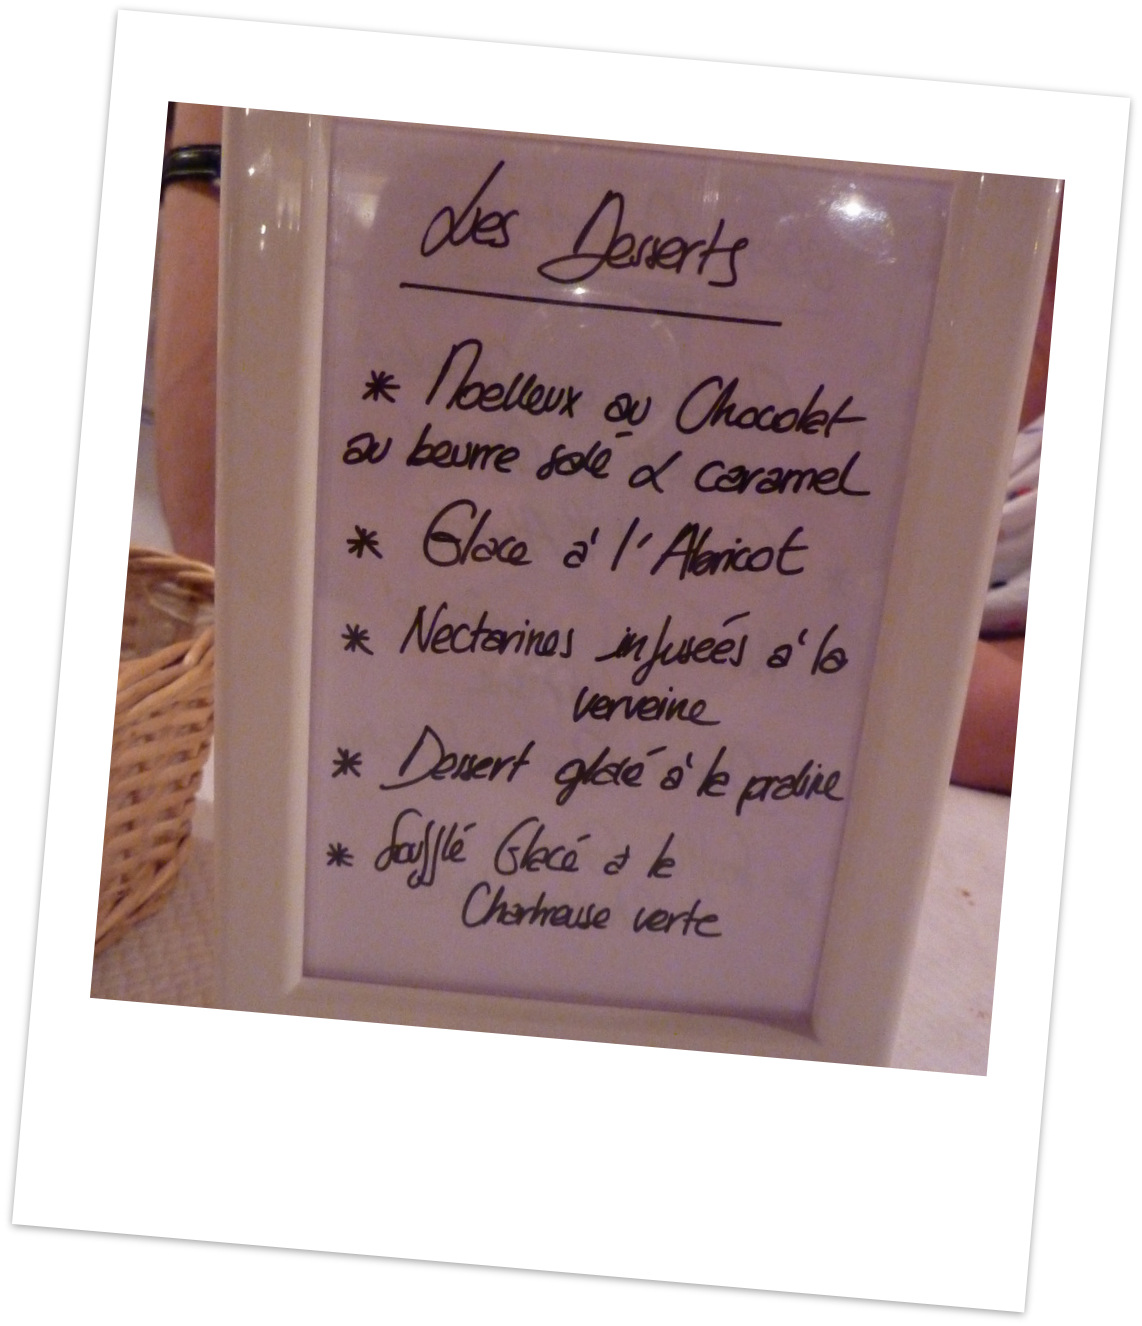 Les Desserts
* Moelleux au Chocolat
au beurre salé & caramel
* Glace à l'Abricot
* Nectarines infusées à la
verveine
* Dessert glacé à la praline
* Soufflé Glacé à la
Chartreuse verte